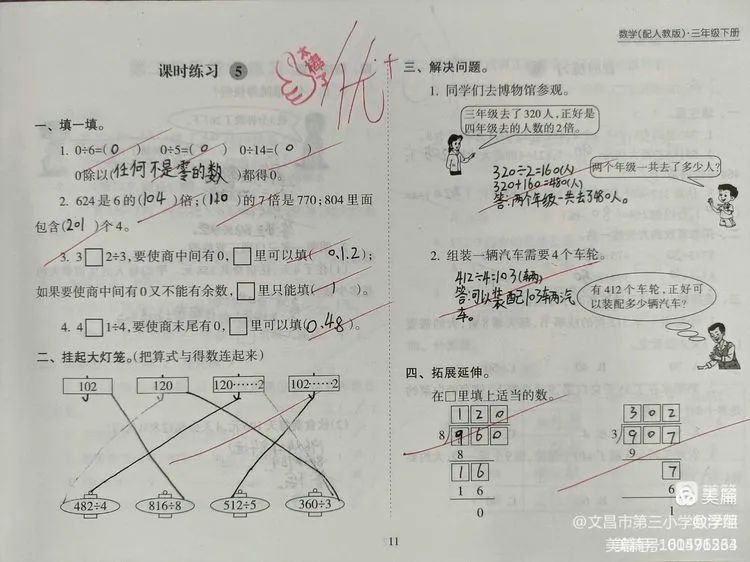 数学(配人教版)·三年级下册
课时练习 5
太棒了
优+
一、填一填。
1. 0÷6=(0) 0÷5=(0) 0÷14=(0)
0除以(任何不是零的数)都得0。
2. 624是6的(104)倍;(110)的7倍是770;804里面
包含(201)个4。
3. 3□2÷3,要使商中间有0,□里可以填(0.1.2);
如果要使商中间有0又不能有余数,□里只能填(1)。
4. 4□1÷4,要使商末尾有0,□里可以填(0.48)。
二、挂起大灯笼。(把算式与得数连起来)
102 120 120……2 102……2
482÷4 816÷8 512÷5 360÷3
三、解决问题。
1. 同学们去博物馆参观。
三年级去了320人,正好是
四年级去的人数的2倍。
320÷2=160(人)
320+160=480(人)
答:两个年级一共去了480人。
两个年级一共去了多少人?
2. 组装一辆汽车需要4个车轮。
412÷4=103(辆)
答:可以装配103辆汽
车。
有412个车轮,正好可
以装配多少辆汽车?
四、拓展延伸。
在□里填上适当的数。
120
8)960
8
16
16
0
302
3)907
9
7
6
1
11
美篇
@文昌市第三小学
美篇号